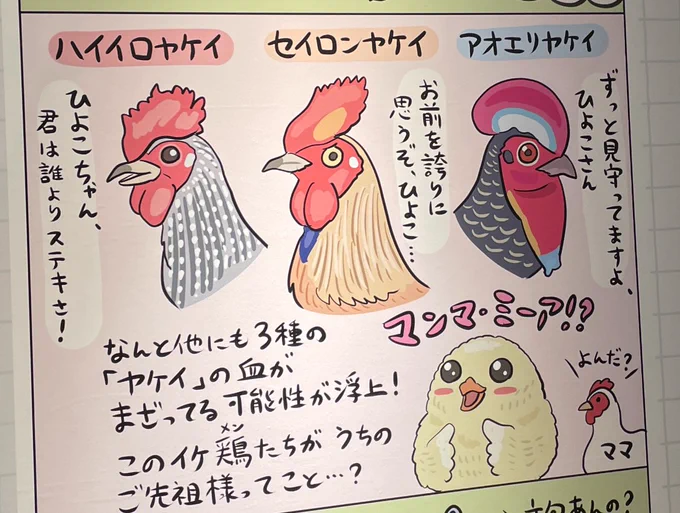 ハイイロヤケイ
セイロンヤケイ
アオエリヤケイ
ひよこちゃん、
君は誰よりステキさ!
お前を誇りに
思うぞ、ひよこ…
ずっと見守ってますよ、
ひよこさん
なんと他にも3種の
「ヤケイ」の血が
まざってる可能性が浮上!
このイケ鶏たちがうちの
メン
ご先祖様ってこと…?
マンマ・ミーア!?
よんだ?
ママ
あんの?